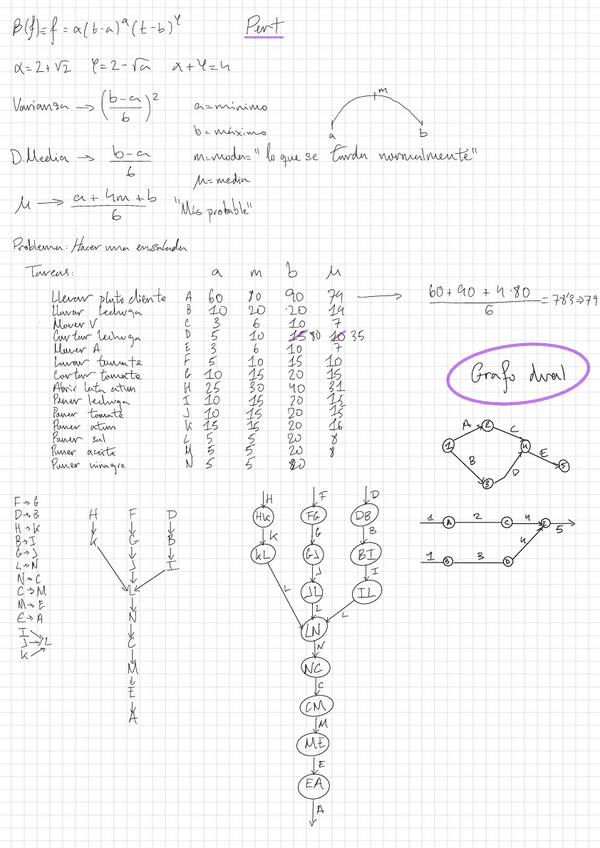 B(f)=f=α(b-a)^α(t-b)^φ Pert
α=2+√2 φ=2-√a α+φ=4
Varianza → ((b-a)/6)² a=mínimo m
b=máximo a b
D.Media → (b-a)/6 m=moda="lo que se tarda normalmente"
μ=media
μ → (a+4m+b)/6 "Más probable"
Problema: Hacer una ensalada
Tareas: a m b μ
Llevar plato cliente A 60 80 90 79 → (60+90+4·80)/6 = 78'3⇒79
Lavar lechuga B 10 20 20 19
Mover V C 3 6 10 7
Cortar lechuga D 5 10 15 80 10 35
Mover A E 3 6 10 7
Lavar tomate F 5 10 15 10
Cortar tomate G 10 15 20 15
Abrir lata atun H 25 30 40 31
Poner lechuga I 10 15 20 15
Poner tomate J 10 15 20 15
Poner atun K 15 15 20 16
Poner sal L 5 5 20 8
Poner aceite M 5 5 20 8
Poner vinagre N 5 5 20
Grafo dual
A 2 C
1 4 E
B D 5
3
1 A 2 C 4 E 5
1 B 3 D 4
F→G
D→B
H→K
B→I
G→J
L→N
N→C
C→M
M→E
E→A
I
J → L
K
H F D
K G B
J I
L
N
C
M
E
A
H F D
HK FG DB
K G B
KL GJ BI
J I
L JL IL
L L
LN
N
NC
C
CM
M
ME
E
EA
A